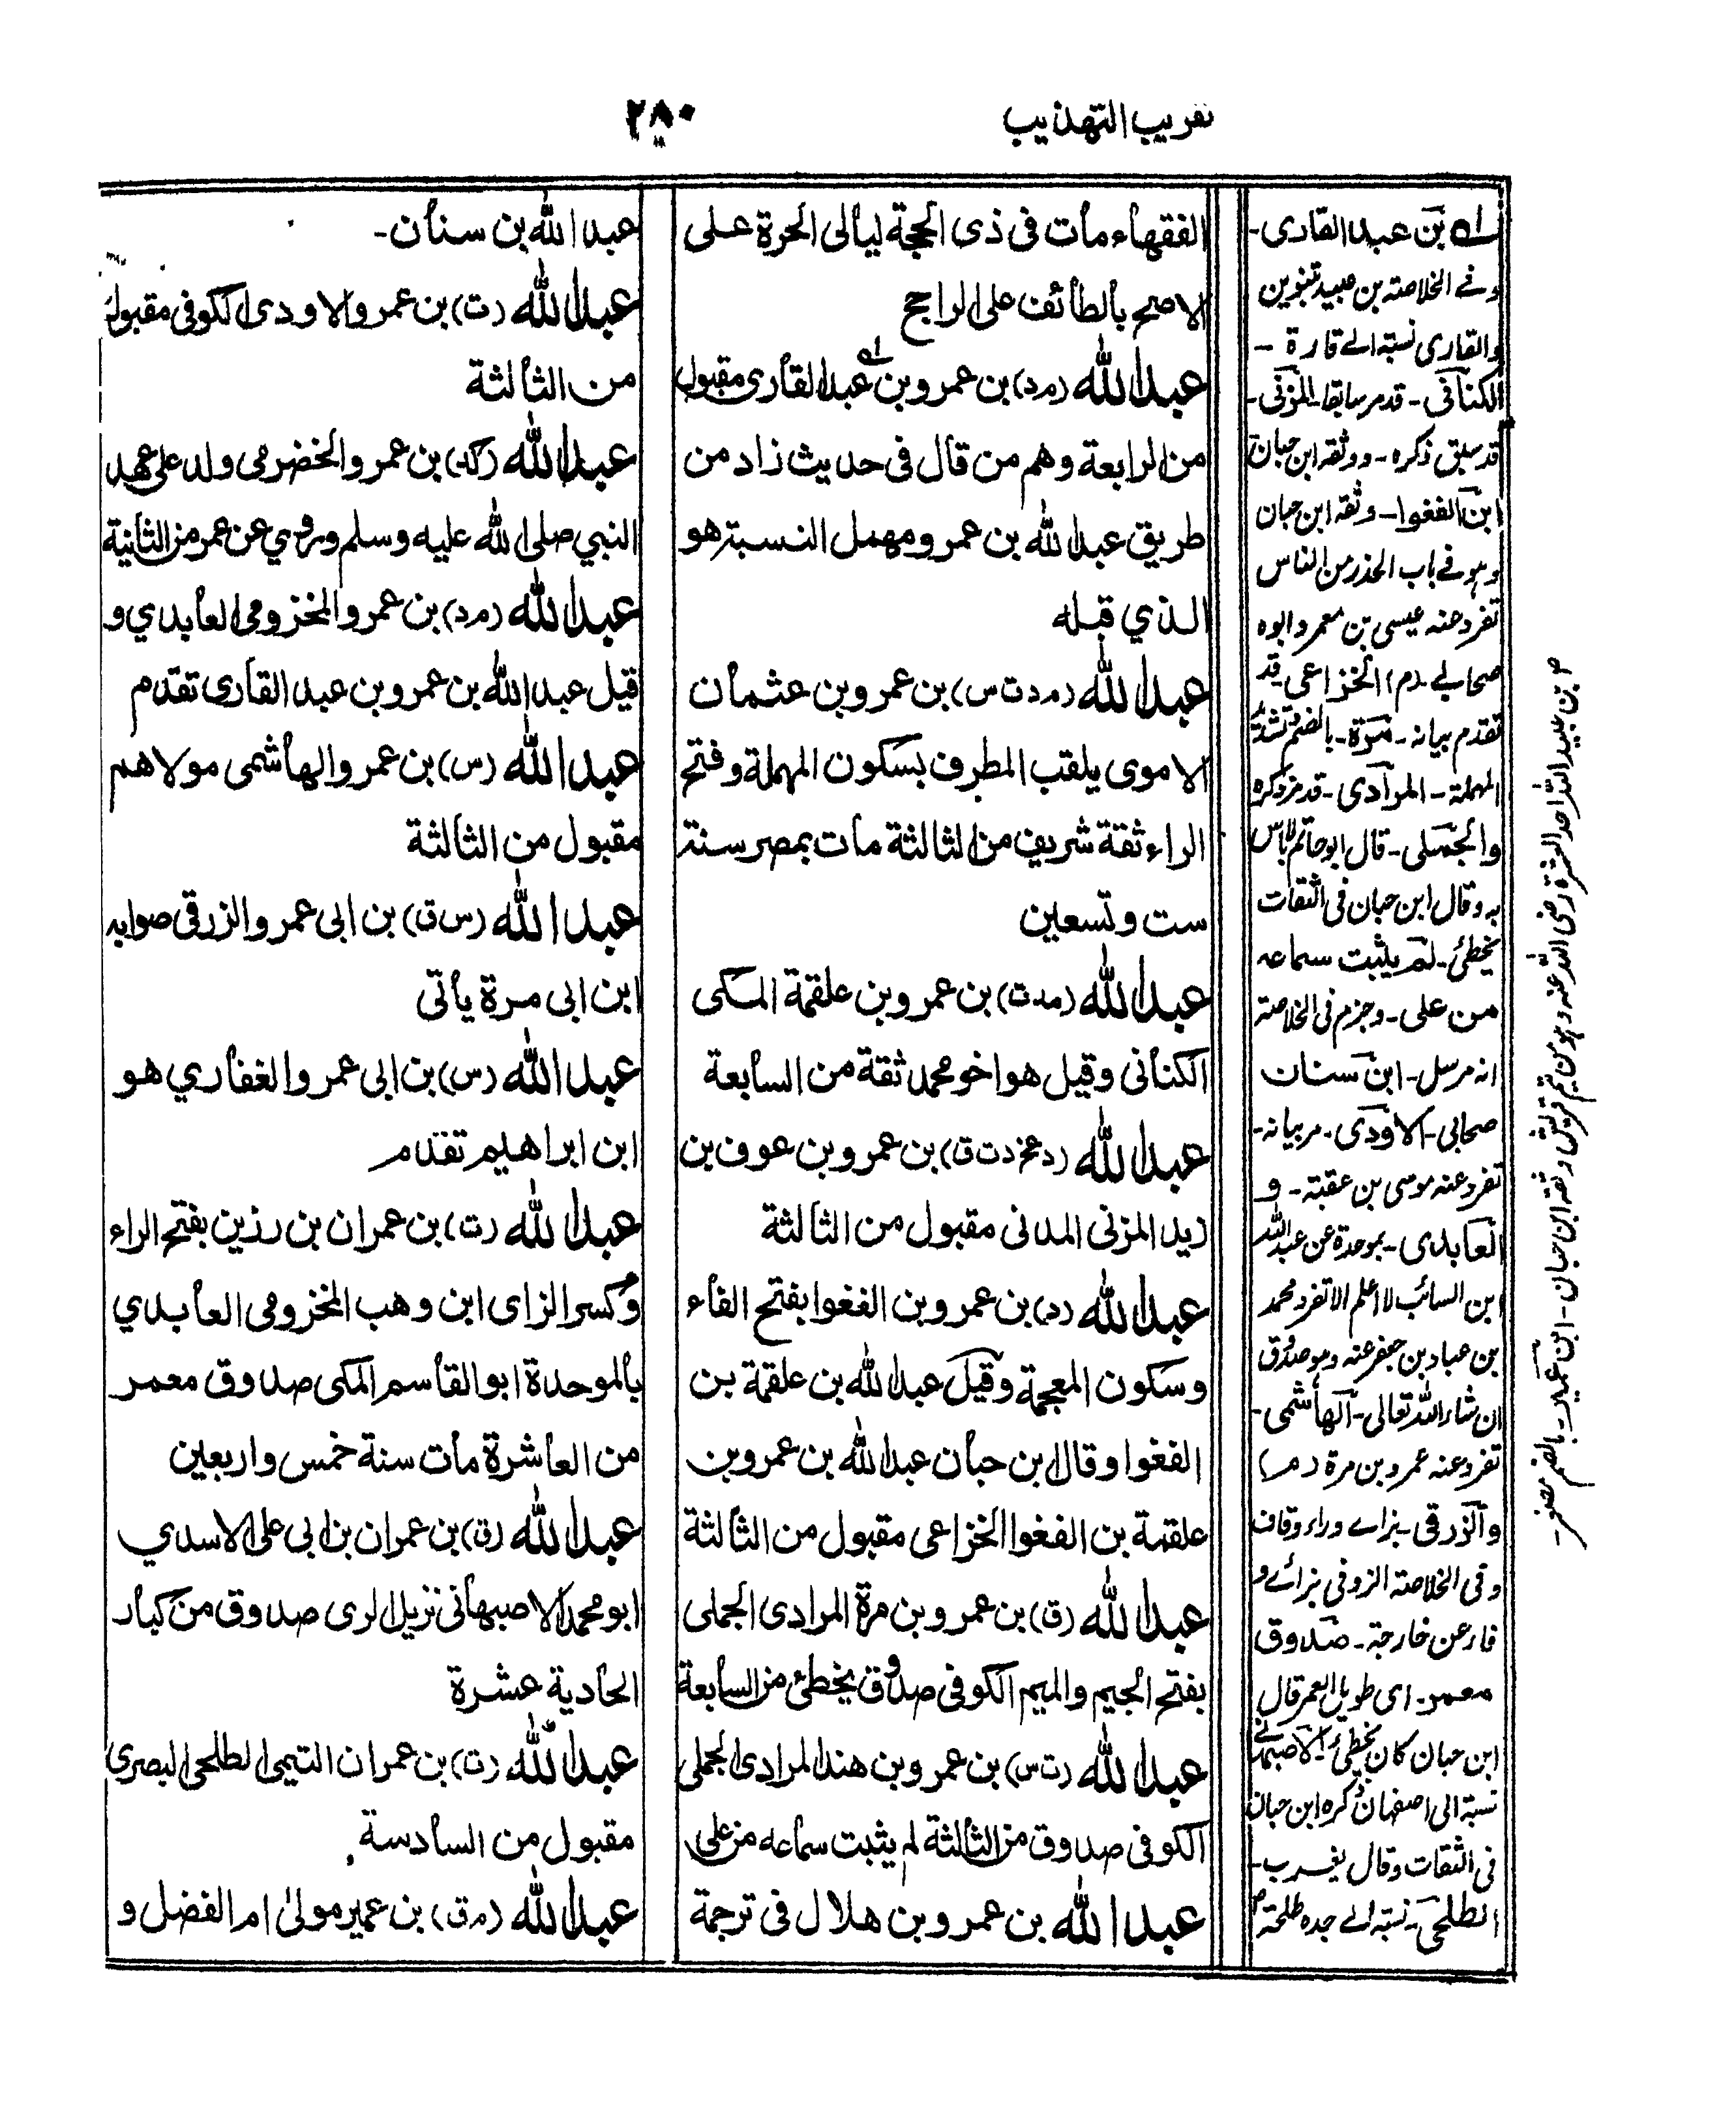 تقريب التهذيب
٢٨٠
الفقهاء مات فى ذى الحجة ليالى الحرة على
الاصح بالطائف على الراجح
عبد الله (م د) بن عمرو بن عبد القارى مقبول
من الرابعة وهم من قال فى حديث زاد من
طريق عبد الله بن عمرو مهمل النسبة هو
الذي قبله
عبد الله (م د ت س) بن عمرو بن عثمان
الاموى يلقب المطرف بسكون المهملة وفتح
الراء ثقة شريف من الثالثة مات بمصر سنة
ست وتسعين
عبد الله (مد ت) بن عمرو بن علقمة المكى
الكنانى وقيل هو اخو محمد ثقة من السابعة
عبد الله (ر عخ د ت ق) بن عمرو بن عوف بن
زيد المزنى المدنى مقبول من الثالثة
عبد الله (د) بن عمرو بن الفغوا بفتح الفاء
وسكون المعجمة وقيل عبد الله بن علقمة بن
الفغوا وقال ابن حبان عبد الله بن عمرو بن
علقمة بن الفغوا الخزاعى مقبول من الثالثة
عبد الله (ق) بن عمرو بن مرة المرادى الجملى
بفتح الجيم والميم الكوفى صدوق يخطئ من السابعة
عبد الله (ت س) بن عمرو بن هند المرادى الجملى
الكوفى صدوق من الثالثة لم يثبت سماعه من على
عبد الله بن عمرو بن هلال فى ترجمة
عبد الله بن سنان-
عبد الله (ت) بن عمرو الاودى الكوفى مقبول
من الثالثة
عبد الله (كد) بن عمرو الخضرمى ولد على عهد
النبي صلى الله عليه وسلم وروي عن عمر من الثانية
عبد الله (م د) بن عمرو المخزومى العابدي و
قيل عبد الله بن عمرو بن عبد القارى تقدم
عبد الله (س) بن عمرو الهاشمى مولاهم
مقبول من الثالثة
عبد الله (س ق) بن ابى عمرو الزرقى صوابه
ابن ابى مرة يأتى
عبد الله (س) بن ابى عمرو الغفاري هو
ابن ابراهيم تقدم
عبد الله (ت) بن عمران بن رزين بفتح الراء
وكسر الزاى ابن وهب المخزومى العابدي
بالموحدة ابو القاسم المكى صدوق معمر
من العاشرة مات سنة خمس واربعين
عبد الله (ق) بن عمران بن ابى على الاسدي
ابو محمد الاصبهانى نزيل الرى صدوق من كبار
الحادية عشرة
عبد الله (ت) بن عمران التيمى الطلحى البصرى
مقبول من السادسة
عبد الله (م ق) بن عمير مولى ام الفضل و
له بن عبد القارى-
وفے الخلاصة بن عبيد بتنوين
والقارى نسبة الے قارة-
الكنانى- قد مر سابقا- المزنى-
قد سبق ذكره- ووثقه ابن حبان
ابن الفغوا- وثقه ابن حبان
وهو فے باب الحذر من الناس
تفرد عنه عيسى بن معمر وابوه
صحابے- (م) الخزاعى- قد
تقدم بيانه- مرة- بالضم تشديد
المهملة- المرادى- قد مر ذكره
والجملى- قال ابو حاتم لا باس
به وقال ابن حبان فى الثقات
يخطئ- لم يثبت سماعه
من على- وجزم فى الخلاصة
انه مرسل- ابن سنان
صحابى- الاودى- مر بيانه-
تفرد عنه موسى بن عقبة- و
العابدى- بموحدة عن عبد الله
ابن السائب لا اعلم الا تفرد محمد
بن عباد بن جعفر عنه وهو صدوق
ان شاء الله تعالى- الهاشمى-
تفرد عنه عمرو بن مرة (م)
والزرقى- بزاے وراء وقاف
وفى الخلاصة الزوفى بزائے و
فاء عن خارجة- صدوق
معمر- اى طويل العمر قال
ابن حبان كان يخطئ- الاصبهانے
نسبة الى اصفهان ذكره ابن حبان
فى الثقات وقال يغرب-
الطلحى- نسبة الے جده طلحة
بن عبيد الله احد العشرة رضى الله عنه وهو من تيم قريش وثقه ابن حبان- ابن عمير- بالضم مصغر-